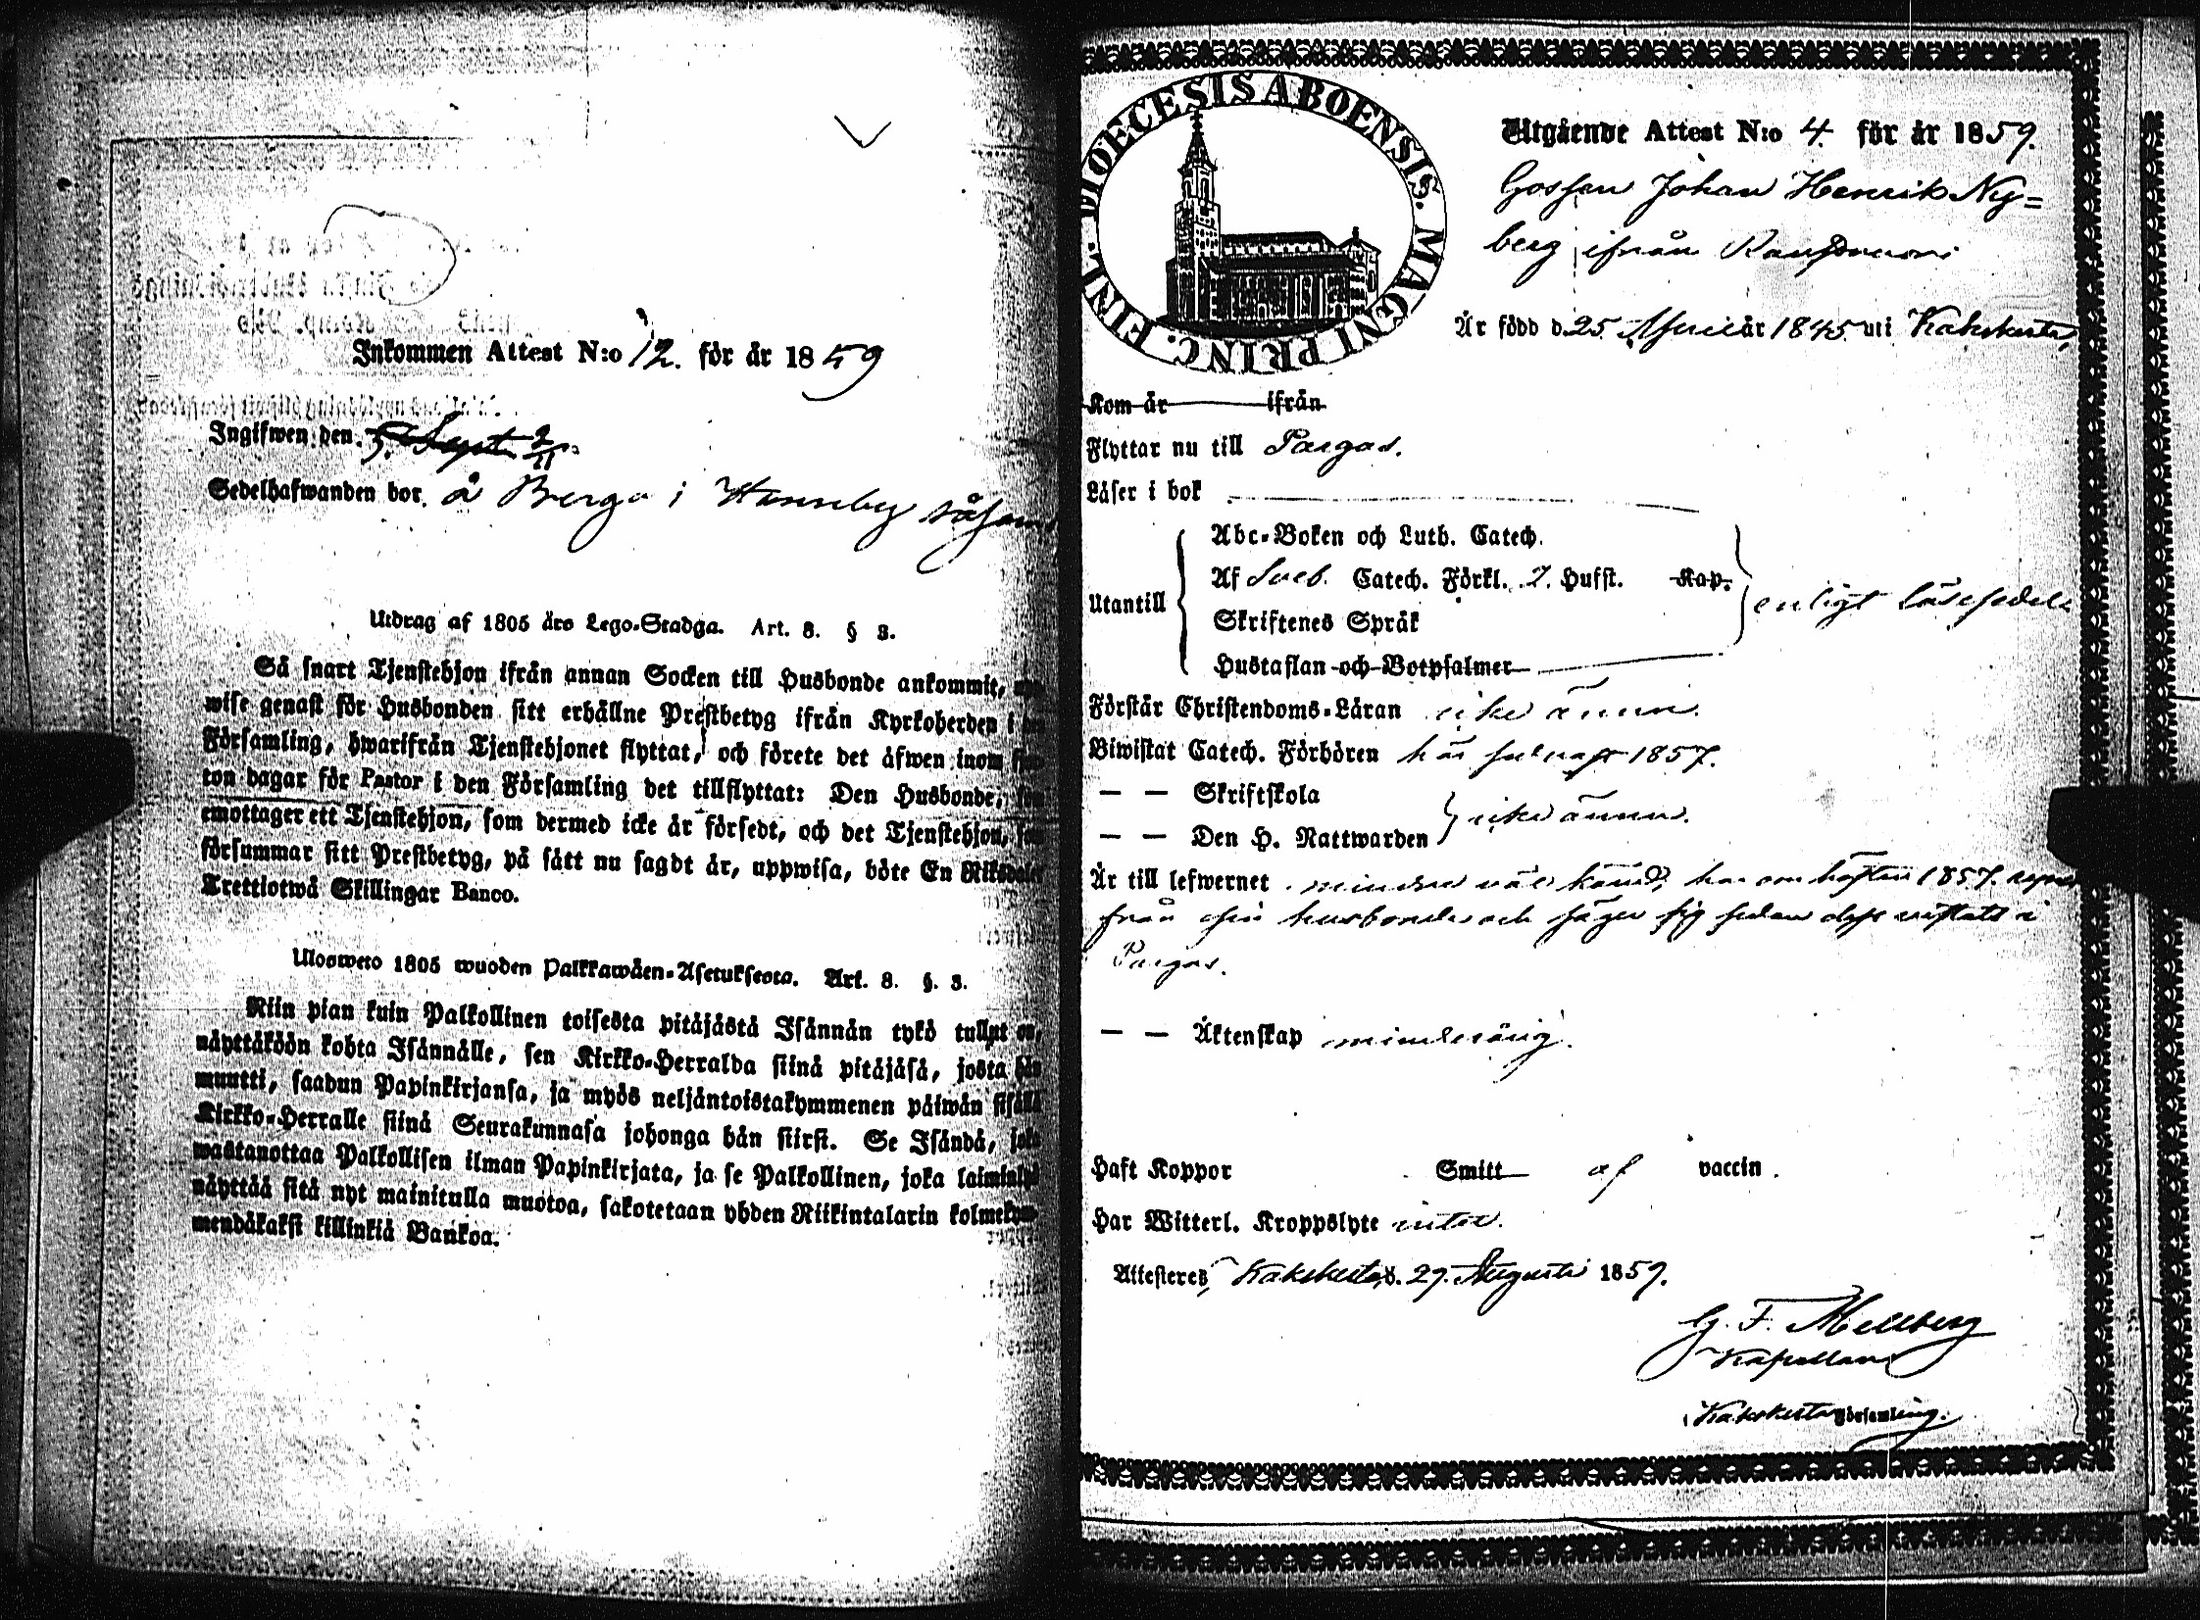 Inkommen Attest N:o 12. för år 1859
Ingifwen den
Sept. 2/11
Sedelhafwanden bor å Bergo i Wanneby såsom
Utdrag af 1805 års Lego-Stadga. Art. 8. § 3.
Så snart Tjenstehjon ifrån annan Socken till Husbonde ankommit,
wise genast för Husbonden sitt erhållne Prestbetyg ifrån Kyrkoherden i
Församling, hwarifrån Tjenstehjonet flyttat, och förete det äfwen inom
ton dagar för Pastor i den Församling det tillflyttat: Den Husbonde,
emottager ett Tjenstehjon, som dermed icke är försedt, och det Tjenstehjon,
försummar sitt Prestbetyg, på sätt nu sagdt är, uppwisa, böte En Riksdaler
Trettiotwå Skillingar Banco.
Ulosweto 1805 wuoden Palkkawäen-Asetuksesta. Art. 8. §. 3.
Niin pian kuin Palkollinen toisesta pitäjästä Isännän tykö tullut on,
näyttäköön kohta Isännälle, sen Kirkko-Herralda siinä pitäjäsä, josta hän
muutti, saadun Papinkirjansa, ja myös neljäntoistakymmenen päiwän sisällä
Kirkko-Herralle siinä Seurakunnasa johonga hän siirsi. Se Isändä, joka
wastanottaa Palkollisen ilman Papinkirjata, ja se Palkollinen, joka laiminlyö
näyttää sitä nyt mainitulla muotoa, sakotetaan yhden Riikintalarin kolmekym-
mendäkaksi killinkiä Bankoa.
DIOECESIS ABOENSIS. MAGNI PRINC. FINL.
Utgående Attest N:o 4. för år 1859.
Gossen Johan Henrik Ny=
berg ifrån
Är född d. 25 April år 1845 uti Kakskerta,
Kom år ifrån
Flyttar nu till Pargas.
Läser i bok
Utantill
Abc-Boken och Luth. Catech.
Af Sveb. Catech. Förkl. 2. Hufst. Kap.
Skriftenes Språk
Hustaflan och Botpsalmer
enligt läsesedeln
Förstår Christendoms-Läran icke ännu.
Biwistat Catech. Förhören här sednast 1857.
— — Skriftskola
— — Den H. Nattwarden
icke ännu.
Är till lefwernet mindre väl känd, har om hösten 1857.
från sin husbonde och säger sig sedan dess vistats i
Pargas.
— — Äktenskap minderårig.
Haft Koppor Smitt af vaccin.
Har Witterl. Kroppslyte intet.
Attesteres, Kakskerta, d. 29. Augusti 1859.
G. F. Mellberg
Kapellan
Kakskerta Församling.